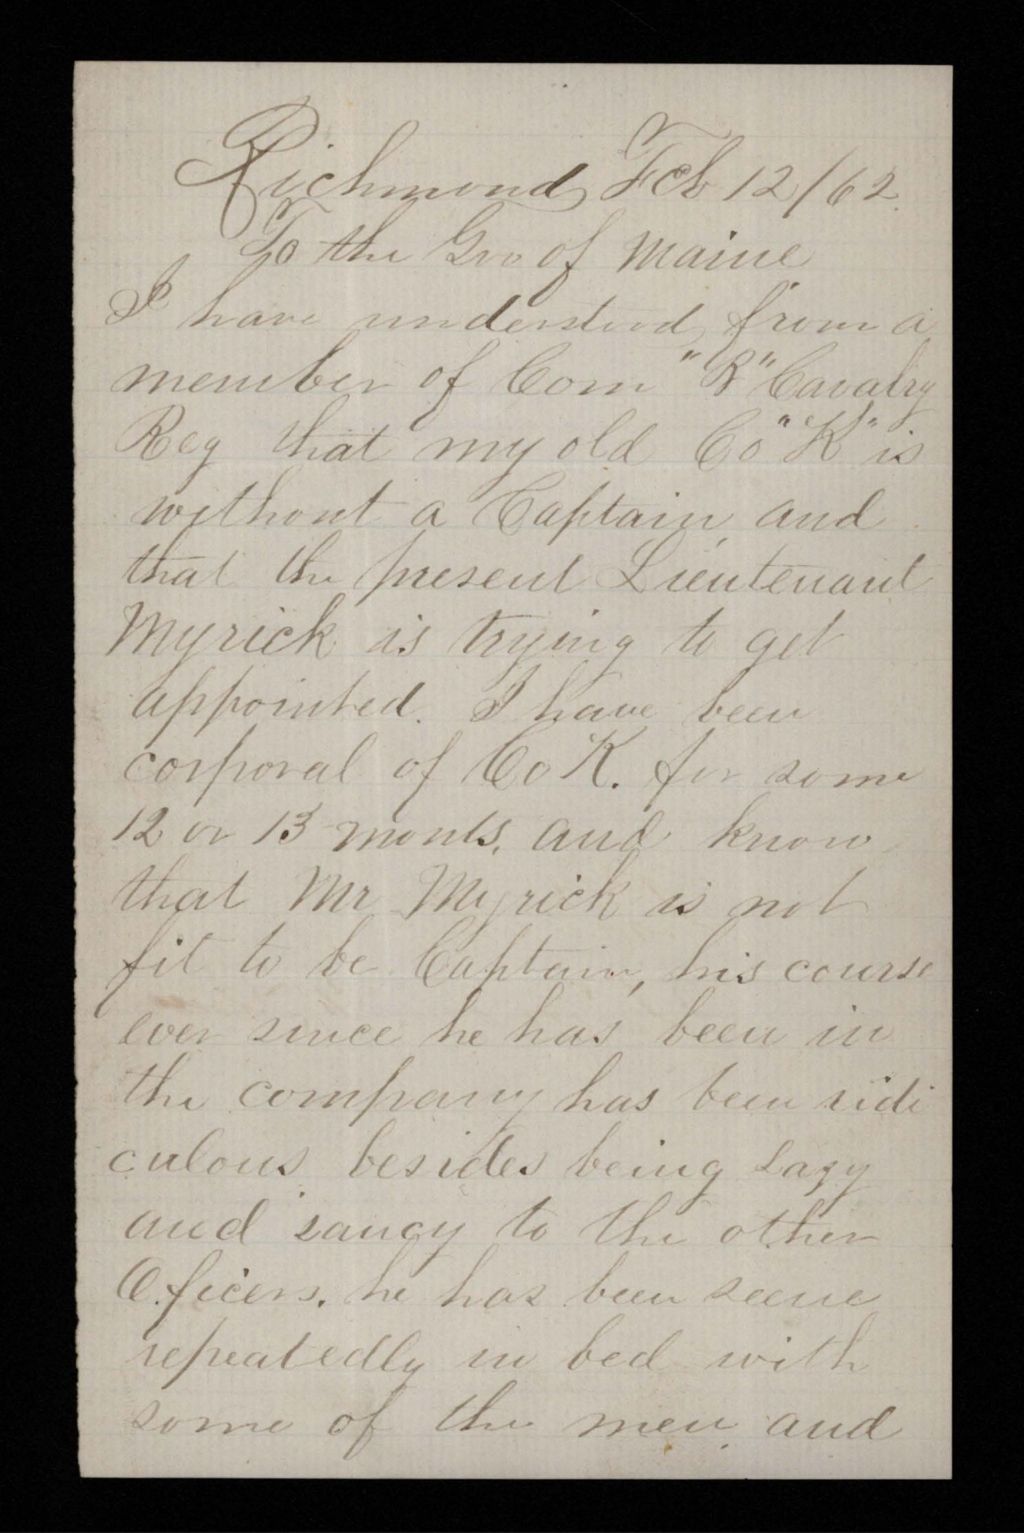 Richmond Feb 12/62.
To the Gov of Maine
I have understood from a
member of Com "B" Cavalry
Reg that my old Co "K" is
without a Captain and
that the present Lieutenant
Myrick is trying to get
appointed. I have been
corporal of Co K. for some
12 or 13 monts. and know
that Mr Myrick is not
fit to be Captain, his course
ever since he has been in
the company has been ridi
culous besides being Lazy
and saucy to the other
Oficers. he has been seene
repeatedly in bed with
some of the men and